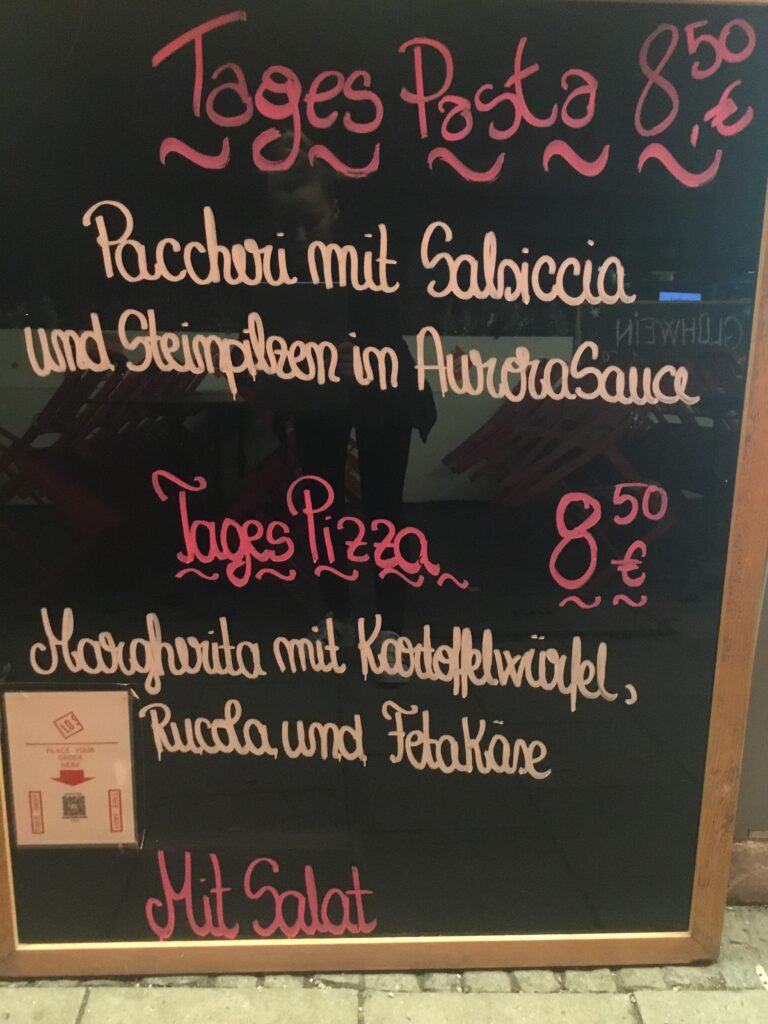 Tages Pasta 8,50 €
Paccheri mit Salsiccia
und Steinpilzen in AuroraSauce
GLÜHWEIN
Tages Pizza 8 50 €
Margherita mit Kartoffelwürfel,
Rucola und FetaKäse
PLACE YOUR
ORDER
HERE
Mit Salat